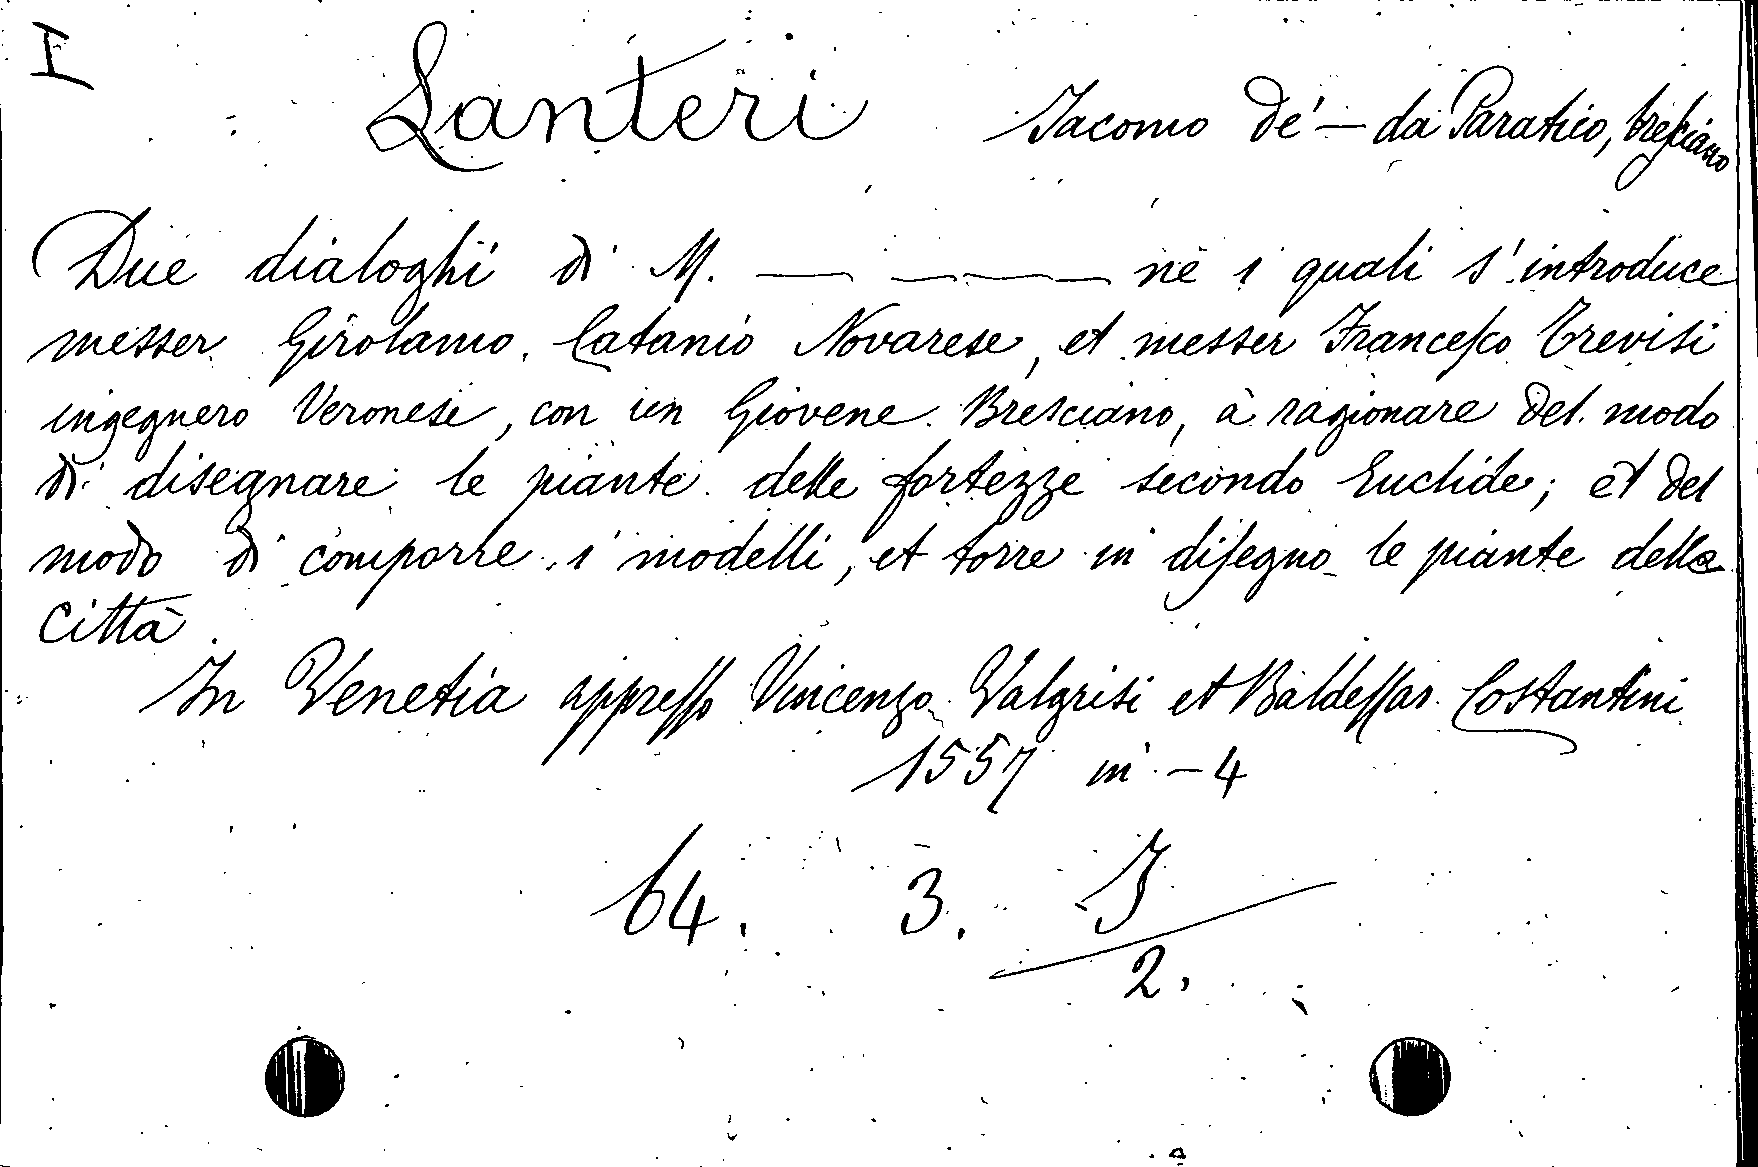 I
Lanteri Jacomo de' — da Paratico, bresciano
Due dialoghi di M. — — ne i quali s'introduce
messer Girolamo Catanio Novarese, et messer Francesco Trevisi
ingegnero Veronese, con un Giovene Bresciano, à ragionare del modo
di disegnare le piante delle fortezze secondo Euclide; et del
modo di comporre i modelli, et torre in disegno le piante delle
Città.
In Venetia appresso Vincenzo Valgrisi et Baldessar Costantini
1557 in - 4
64. 3. J
2.